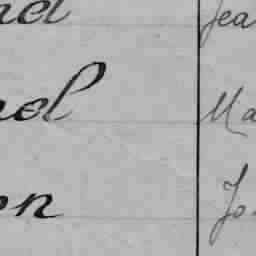 nel Jea
nel Ma
on Jo